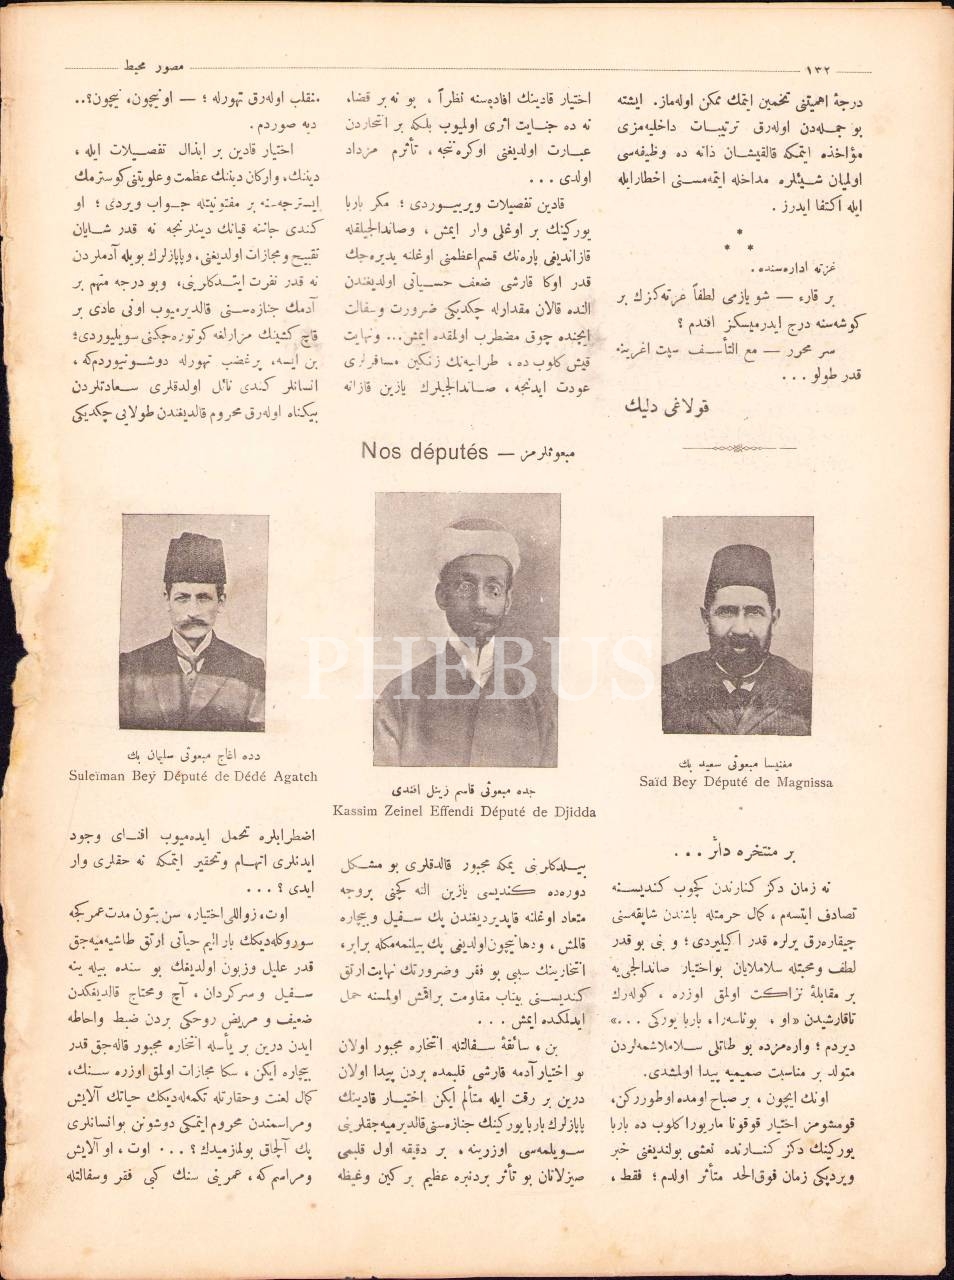 ١٣٢
مصور محيط
درجهٔ اهميتنى تخمين ايتمك ممكن اوله‌ماز. ايشته
بو جمله‌دن اوله‌رق ترتيبات داخليه‌مزى
مؤاخذه ايتمكه قالقيشان ذاته ده وظيفه‌سى
اولميان شيئلره مداخله ايتمه‌مسنى اخطار ايله
ايله اكتفا ايدرز .
*
* *
غزته اداره‌سنده .
بر قارء — شو يازمى لطفاً غزته‌كزك بر
كوشه‌سنه درج ايدرميسكز افندم ؟
سر محرر — مع التأسف سپت اغزينه
قدر طولو . . .
قولاغى دليك
اختيار قادينك افاده‌سنه نظراً ، بو نه بر قضا،
نه ده جنايت اثرى اولميوب بلكه بر انتحاردن
عبارت اولديغنى اوكرەنجه ، تأثرم مزداد
اولدى . . .
قادين تفصيلات ويرييوردى ؛ مكر باربا
يوركينك بر اوغلى وار ايمش ، وصاندالجيلقله
قازانديغى پاره‌نك قسم اعظمنى اوغلنه يديره‌جك
قدر اوكا قارشى ضعف حسياتى اولديغندن
النده قالان مقدارله چكديكى ضرورت وسفالت
ايچنده چوق مضطرب اولمقده ايمش... ونهايت
قيش كلوب ده ، طرابيه‌نك زنكين مسافرلرى
عودت ايدنجه ، صاندالجيلرك يازين قازانه
منقلب اوله‌رق تهورله ؛ — او نيچون، نيچون؟..
ديه صوردم .
اختيار قادين بر ابذال تفصيلات ايله ،
ديننك، واركان ديننك عظمت وعلويتنى كوسترمك
ايسترجه‌سنه بر مفتونيتله جواب ويردى ؛ او
كندى جاننه قيانك دينلرنجه نه قدر شايان
تقبيح ومجازات اولديغنى، وپاپازلرك بويله آدملردن
نه قدر نفرت ايتدكلرينى، وبو درجه متهم بر
آدمك جنازه‌سنى قالديرميوب اونى عادى بر
قاچ كشينك مزارلغه كوتوره‌جكنى سويليوردى؛
بن ايسه، پرغضب تهورله دوشونيوردم‌كه،
انسانلر كندى نائل اولدقلرى سعادتلردن
بيكناه اوله‌رق محروم قالديغندن طولايى چكديكى
Nos députés — مبعوثلرمز
دده اغاج مبعوثى سليمان بك
Suleïman Beÿ Député de Dédé Agatch
جده مبعوثى قاسم زينل افندى
Kassim Zeinel Effendi Député de Djidda
مغنيسا مبعوثى سعيد بك
Saïd Bey Député de Magnissa
PHEBUS
بر منتحره دائر . . .
نه زمان دكز كنارندن كچوب كنديسنه
تصادف ايتسه‌م ، كمال حرمتله باشندن شاپقه‌سنى
چيقاره‌رق يرلره قدر اكيليردى ؛ و بنى بو قدر
لطف ومحبتله سلاملايان بو اختيار صاندالجى‌يه
بر مقابلهٔ نزاكت اولمق اوزره ، كوله‌رك
تاقارشيدن «او ، بوناسه‌را ، باربا يوركى . . .»
ديردم ؛ واره‌مزده بو طاتلى سلاملاشمه‌لردن
متولد بر مناسبت صميميه پيدا اولمشدى.
اونك ايچون ، بر صباح اومده اوطوررکن،
قومشومز اختيار قوقونا ماريورا كلوب ده باربا
يوركينك دكز كنارنده نعشى بولنديغنى خبر
ويرديكى زمان فوق‌الحد متأثر اولدم ؛ فقط ،
بيلدكلرنى يمكه مجبور قالدقلرى بو مشكل
دوره‌ده كنديسى يازين النه كچنى بروجه
معتاد اوغلنه قاپديرديغندن پك سفيل و بيچاره
قالمش ، ودها نيچون اولديغى پك بيلنمه‌مكله برابر،
انتحارينك سببى بو فقر وضرورتك نهايت ارتق
كنديسنى بيتاب مقاومت براقمش اولمسنه حمل
ايدلكده ايمش . . .
بن ، سائقهٔ سفالتله انتحاره مجبور اولان
بو اختيار آدمه قارشى قلبمده بردن پيدا اولان
درين بر رقت ايله متألم ايكن اختيار قادينك
پاپازلرك باربا يوركينك جنازه‌سنى قالديرميه‌جقلرينى
سويلمه‌سى اوزرينه ، بر دقيقه اول قلبمى
صيزلاتان بو تأثر بردنبره عظيم بر كين وغيظه
اضطرابلره تحمل ايده‌ميوب افناى وجود
ايدنلرى اتهام وتحقير ايتمكه نه حقلرى وار
ايدى ؟ . . .
اوت ، زواللى اختيار، سن بتون مدت عمركجه
سوروكله‌ديكك بار اليم حياتى ارتق طاشيه‌ميه‌جق
قدر عليل وزبون اولديغك بو سنده بيله ينه
سفيل و سركردان ، آچ ومحتاج قالديغكدن
ضعيف و مريض روحكى بردن ضبط واحاطه
ايدن درين بر يأسله انتحاره مجبور قاله‌جق قدر
بيچاره ايكن ، سكا مجازات اولمق اوزره سنك،
كمال لعنت وحقارتله تكمه‌له‌ديكك حياتك آلايش
ومراسمندن محروم ايتمكى دوشونن بو انسانلرى
پك آلچاق بولمازميدك ؟ . . . اوت ، او آلايش
ومراسم كه ، عمرينى سنك كبى فقر وسفالتله